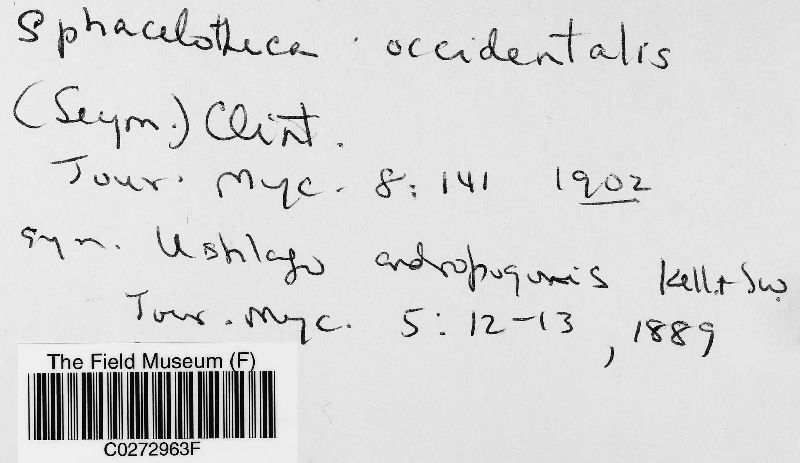 Sphacelotheca occidentalis
(Seym.) Clint.
Jour. Myc. 8: 141 1902
syn. Ustilago andropogonis Kell. + Sw.
Jour. Myc. 5: 12-13, 1889
The Field Museum (F)
C0272963F